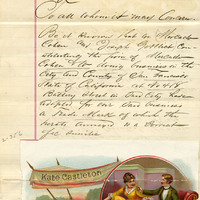 To all whom it may Concern.
Be it Known that we Mordecai
Cohen and Joseph Gottlieb Con-
stituting the firm of Mordecai
Cohen & Co doing business in the
City and County of San Francisco
State of California at No 414
Battery Street in said City have
adopted for our said business
a Trade Mark of which the
hereto annexed is a
fac simile
Kate Castleton